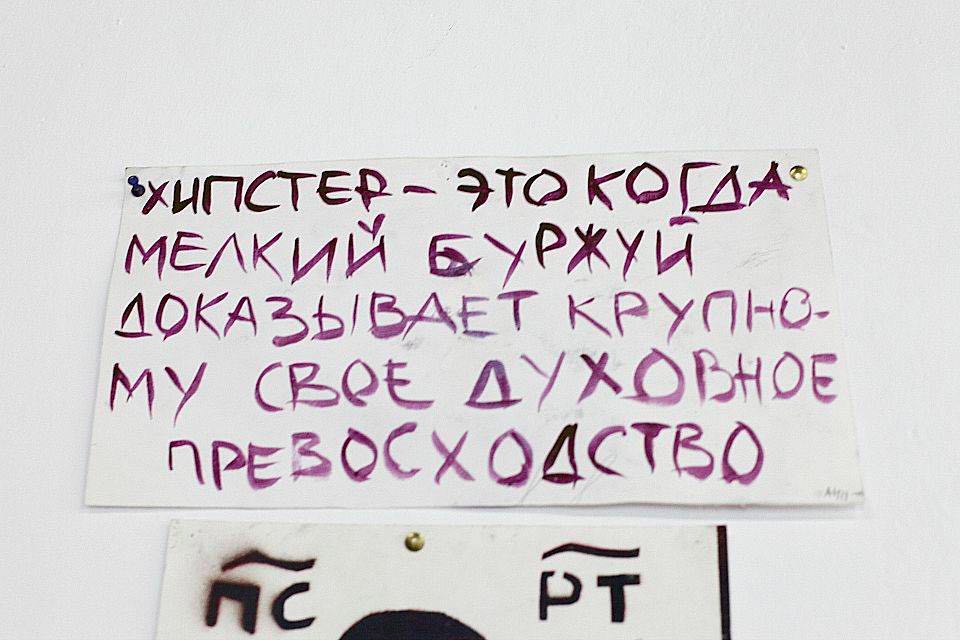 ХИПСТЕР – ЭТО КОГДА
МЕЛКИЙ БУРЖУЙ
ДОКАЗЫВАЕТ КРУПНО-
МУ СВОЕ ДУХОВНОЕ
ПРЕВОСХОДСТВО
ПС РТ